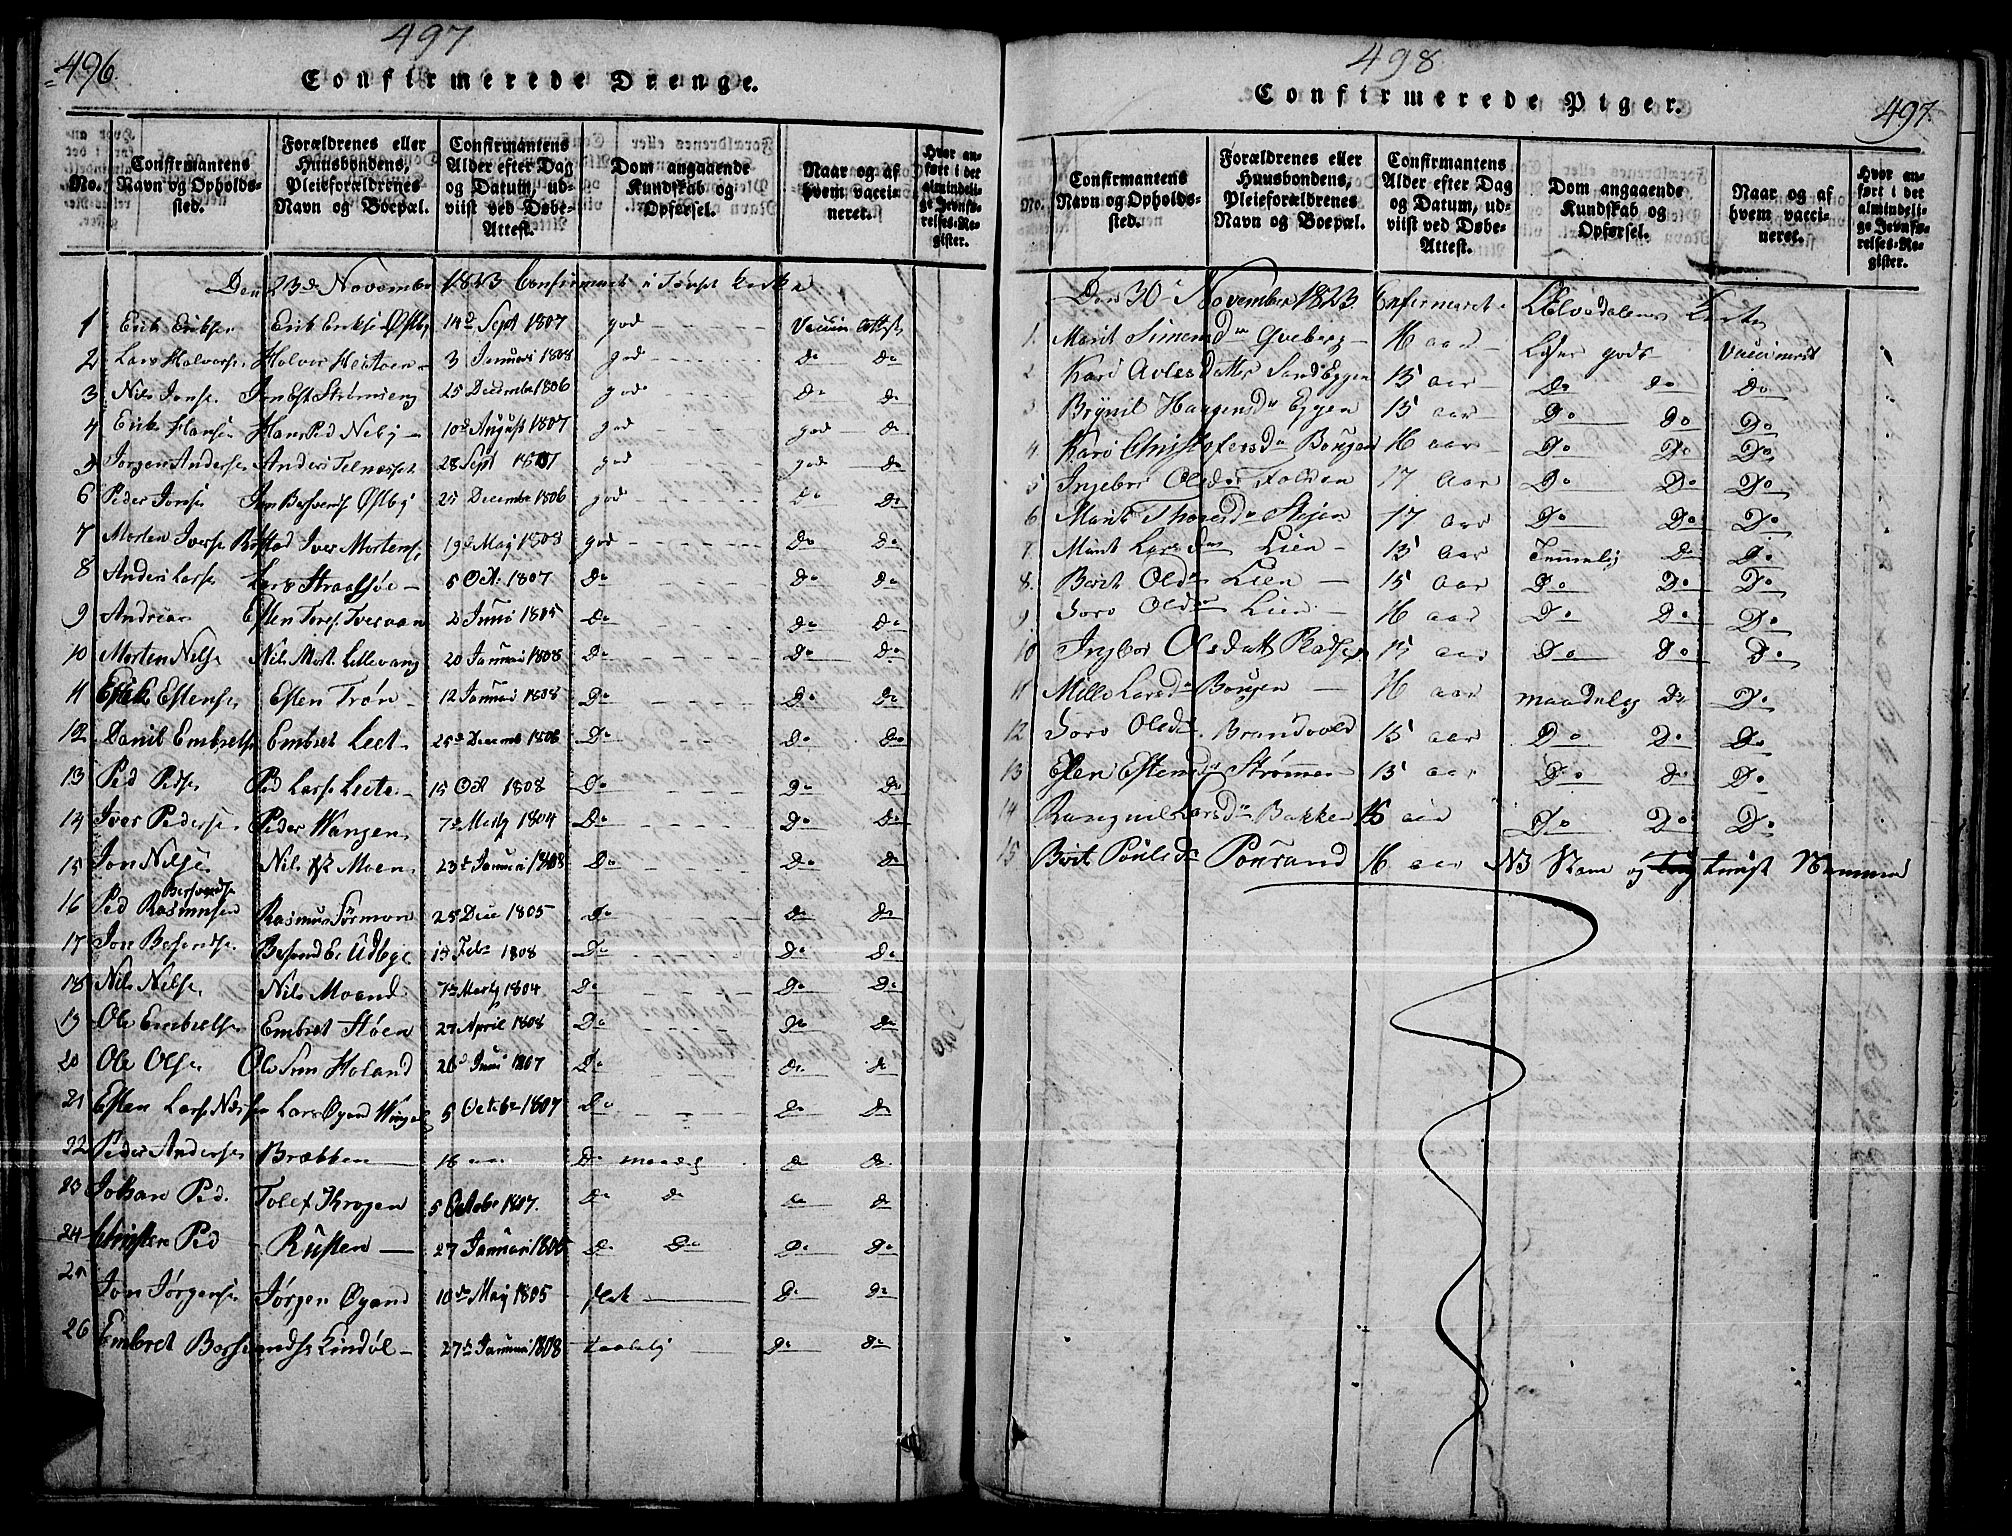 497
496.
Confirmerede Drenge.
No.
Confirmantens Navn og Opholdssted.
Forældrenes eller Huusbondens, Pleieforældrenes Navn og Boepæl.
Confirmantens Alder efter Dag og Datum, udviist ved Døbe-Attest.
Dom angaaende Kundskab og Opførsel.
Naar og af hvem vaccineret.
Hvor anført i det almindelige Jevnførelses-Register.
Den 23de November 1823 Confirmeret i Tønset Kirke
1 Erik Eriksen Erik Eriksen Østby 14de Sept 1807 god Vaccin Attest
2 Lars Halvorsen Halvor 3 Januari 1808 god Do Do
3 Nils Jonsen Jon Est Strømseng 25 December 1806 god Do Do
4 Erik Hansen Hans Ped Neby 10de August 1807 god god do
5 Jørgen Andersen Anders Telnesset 28 Sept 1807 god god do
6 Peder Jonsen Jon Østby 25 December 1806 god Do Do
7 Morten Iversen Iver Mortens 19de May 1808 god Do Do
8 Anders Larsen Lars Straalsøe 5 Oct. 1807 Do Do Do
9 Andreas Esten 2 Juni 1805 Do Do Do
10 Morten Nelsen Nils Mort. Lillevang 20 Januari 1808 Do Do Do
11 Estensen Esten Trøn 12 Januari 1808 Do Do Do
12 Danil Embretsen Embret Leet 25de Decemb 1808 Do Do Do
13 Ped Pedsen Ped Larsen Leete 15 Oct 1808 Do Do Do
14 Iver Pedersen Peder Wangen 7de Marty 1804 Do Do Do
15 Jon Nelsen Nils Moen 23de Januari 1808 Do Do Do
16 Ped Rasmusen Rasmus Sørmoen 25de Dec 1805 Do Do Do
17 Jon 15 Febr 1808 Do Do Do
18 Nils Nelsen Nils Moen 7de Marty 1804 Do Do Do
19 Ole Embretsen Embret Støen 27 April 1808 Do Do Do
20 Ole Olsen Ole Sim Holand 26de Juni 1807 Do Do Do
21 Esten Larsen Lars Øyan 5 October 1807 Do Do Do
22 Peder Andersen Bræbben 16 aar Do Do Do
23 Johan Ped. Krogen 5 October 1807. Do Do Do Do
24 Christen Ped Rusten 27 Januari 1806 Do Do Do Do
25 Jon Jørgensen Jørgen Øyand 10de May 1805 slet Do Do
26 Embret Lindøl 27de Januari 1808 Do Do
498
497.
Confirmerede Piger.
No.
Confirmantens Navn og Opholdssted.
Forældrenes eller Huusbondens, Pleieforældrenes Navn og Boepæl.
Confirmantens Alder efter Dag og Datum, udviist ved Døbe-Attest.
Dom angaaende Kundskab og Opførsel.
Naar og af hvem vaccineret.
Hvor anført i det almindelige Jevnførelses-Register.
Den 30te November 1823 Confirmeret i Lilelvedalens Kirke
1. Marit Simensdr Qveberg 16 aar Læser godt Vaccineret
2 Kari Avlesdatter Sand Eggen 15 aar Do do Do
3 Brynil Haagensdr Eggen 15 aar Do Do Do
4. Kari Christofersdr Bougen 16 aar Do Do Do
5 Ingebor Olsdr Foldan 17 aar Do Do Do
6 Marit Thoresdr Stejen 17 aar Do Do Do
7. Marit Larsdr Lien 15 aar Temmelig Do Do
8. Berit Olsdr Lien 15 aar Do Do Do
9 Olsdr Lien 16 aar Do Do Do
10 Ingebor Olsdatt 15 aar Do Do Do
11 Mille Larsdr Bougen 16 aar maadelig Do Do
12 Olsdr Brandvold 15 aar Do Do Do
13 Estensdr Strømmen 15 aar Do Do Do
14 Larsdr Bakken 16 aar Do Do Do
15 Berit Poulsdr 16 aar NB og